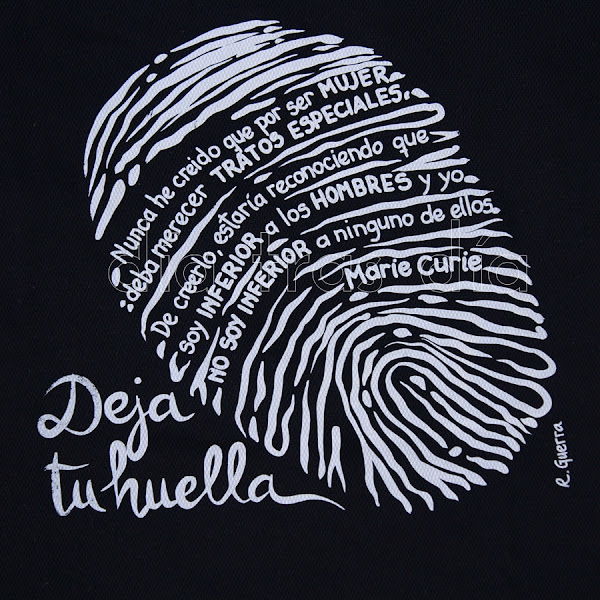 Nunca he creido que por ser MUJER
deba merecer TRATOS ESPECIALES.
De creerlo, estaría reconociendo que
soy INFERIOR a los HOMBRES y yo
NO SOY INFERIOR a ninguno de ellos.
Marie Curie
día tras día
Deja
tu huella
R. Guerra